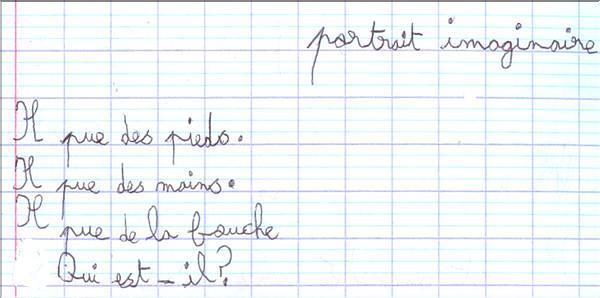 portrait imaginaire
Il pue des pieds.
Il pue des mains.
Il pue de la bouche
Qui est-il?